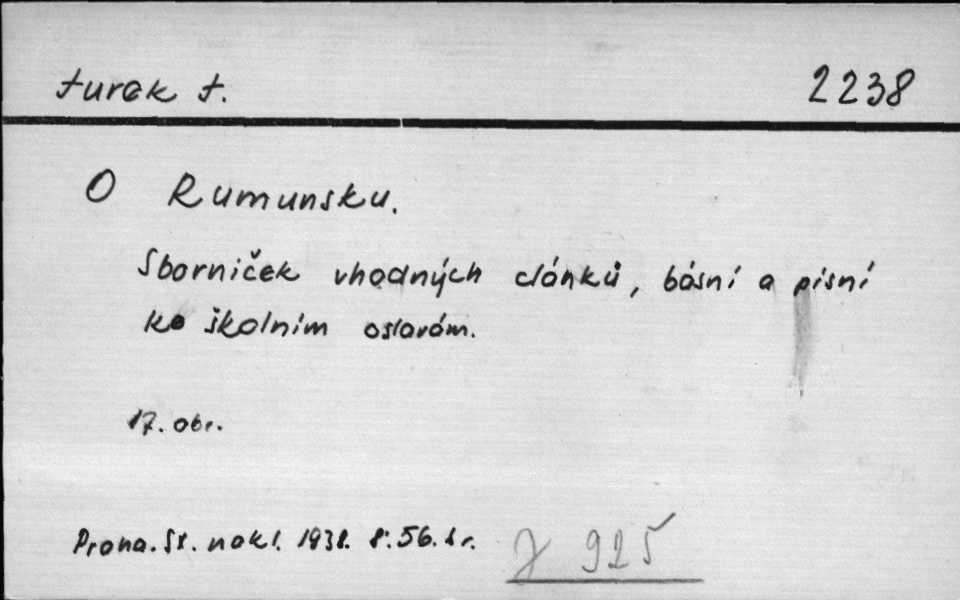 turek t. 2238
O Rumunsku.
Sborníček vhodných článků, básní a písní
ke školním oslavám.
17. obr.
Praha. St. nakl. 1938. 8°. 56. str.
J 925